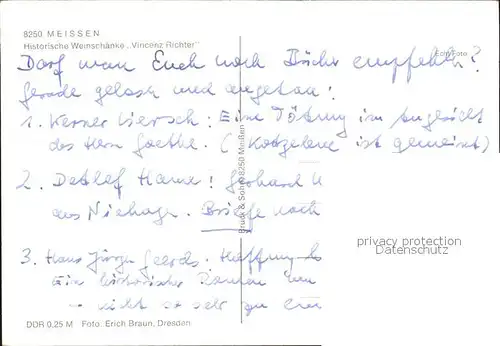 8250 MEISSEN
Historische Weinschänke „Vincenz Richter"
Echt Foto
Darf man Euch noch Bücher empfehlen?
Gerade gelesen und angetan:
1. Werner Liersch: Eine Tötung im Angesicht
des Herrn Goethe. (Kotzebue ist gemeint)
2. Detlef
Briefe nach
3. Hans Jürgen Geerds. Hoffnung
Ein historischer Roman
– nicht so sehr zu
Bruck & Sohn 8250 Meißen
privacy protection
Datenschutz
DDR 0,25 M Foto: Erich Braun, Dresden